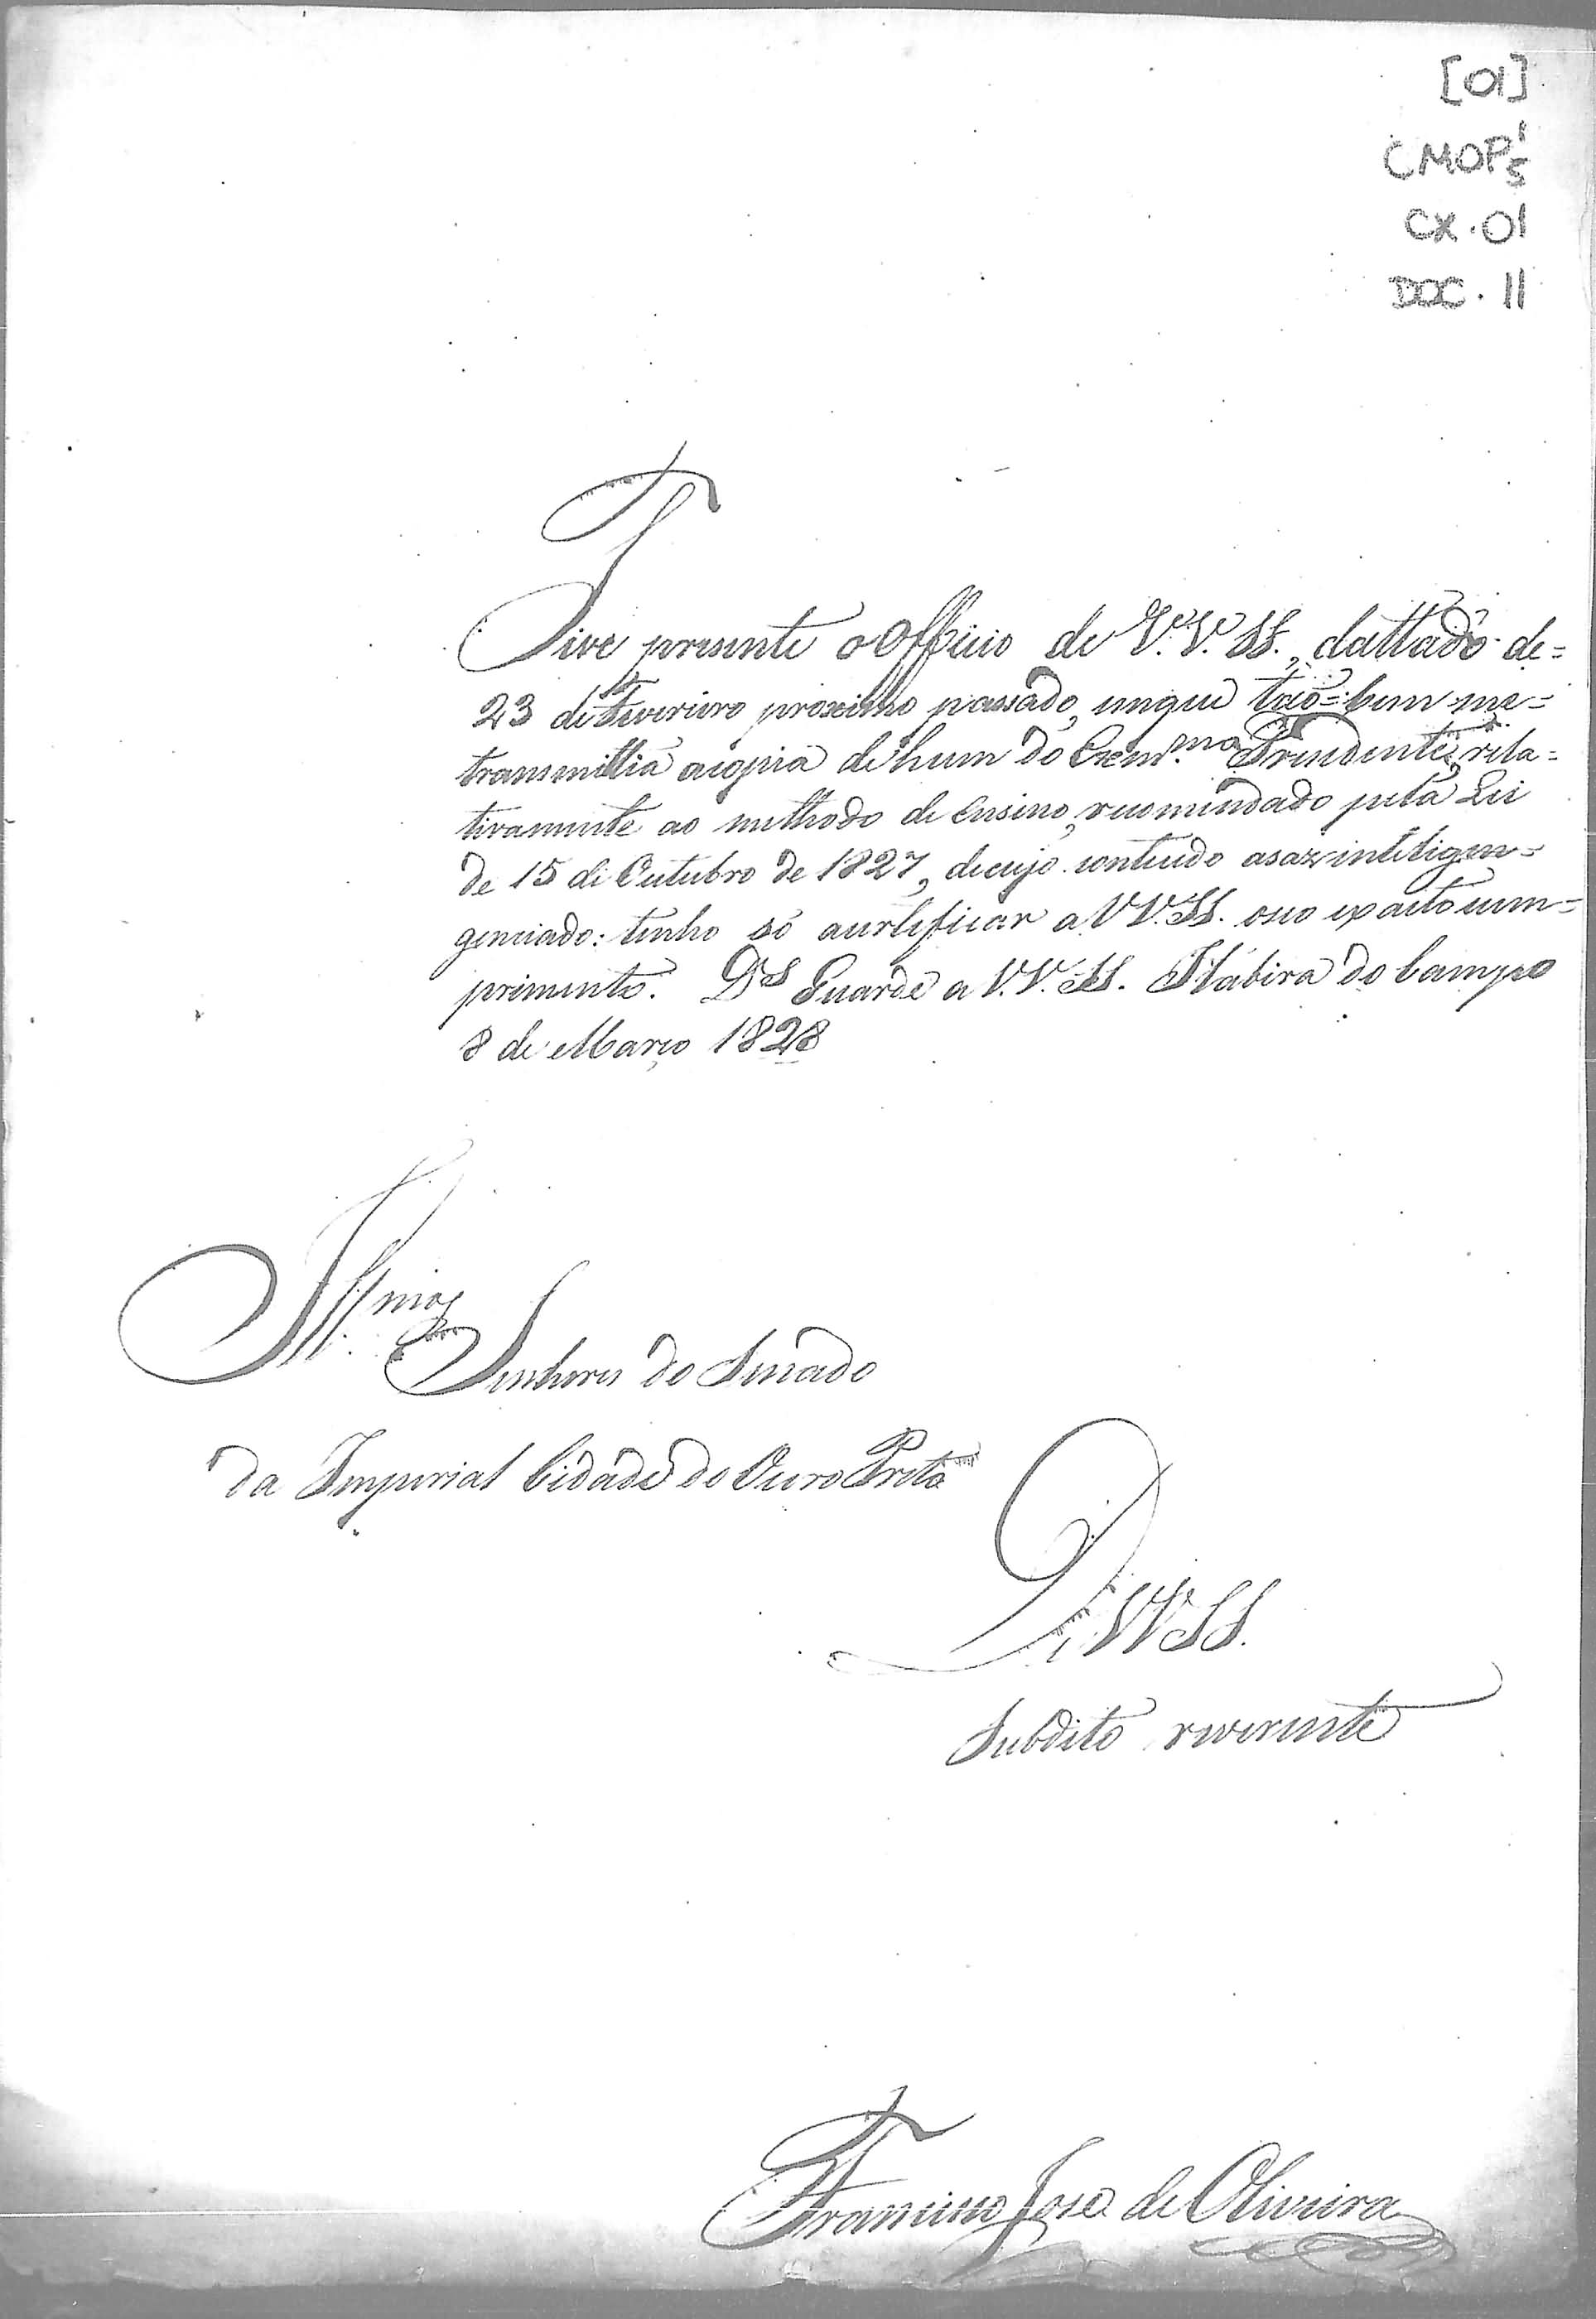 [01]
CMOP 1/5
CX. 01
DOC. 11
Tive presente o Officio de V.V. SS., dattado de=
23 de Fevereiro proximo passado, emque tão=bem me=
transmittia acopia dehum do Exm.mo Prezidente, rela=
tivamente ao methodo de ensino, recomendado pela Lei
de 15 de Outubro de 1827, decujo contendo asaz inteligen=
genciado: tenho só acertificar a VV. SS. oseo exacto cum=
primento. Ds Guarde a V.V. SS. Itabira do Campo
8 de Março 1828
Ill.mos Senhores do Senado
da Imperial Cidade do Ouro Preto
De VVSS.
Subdito reverente
Francisco Jose de Oliveira